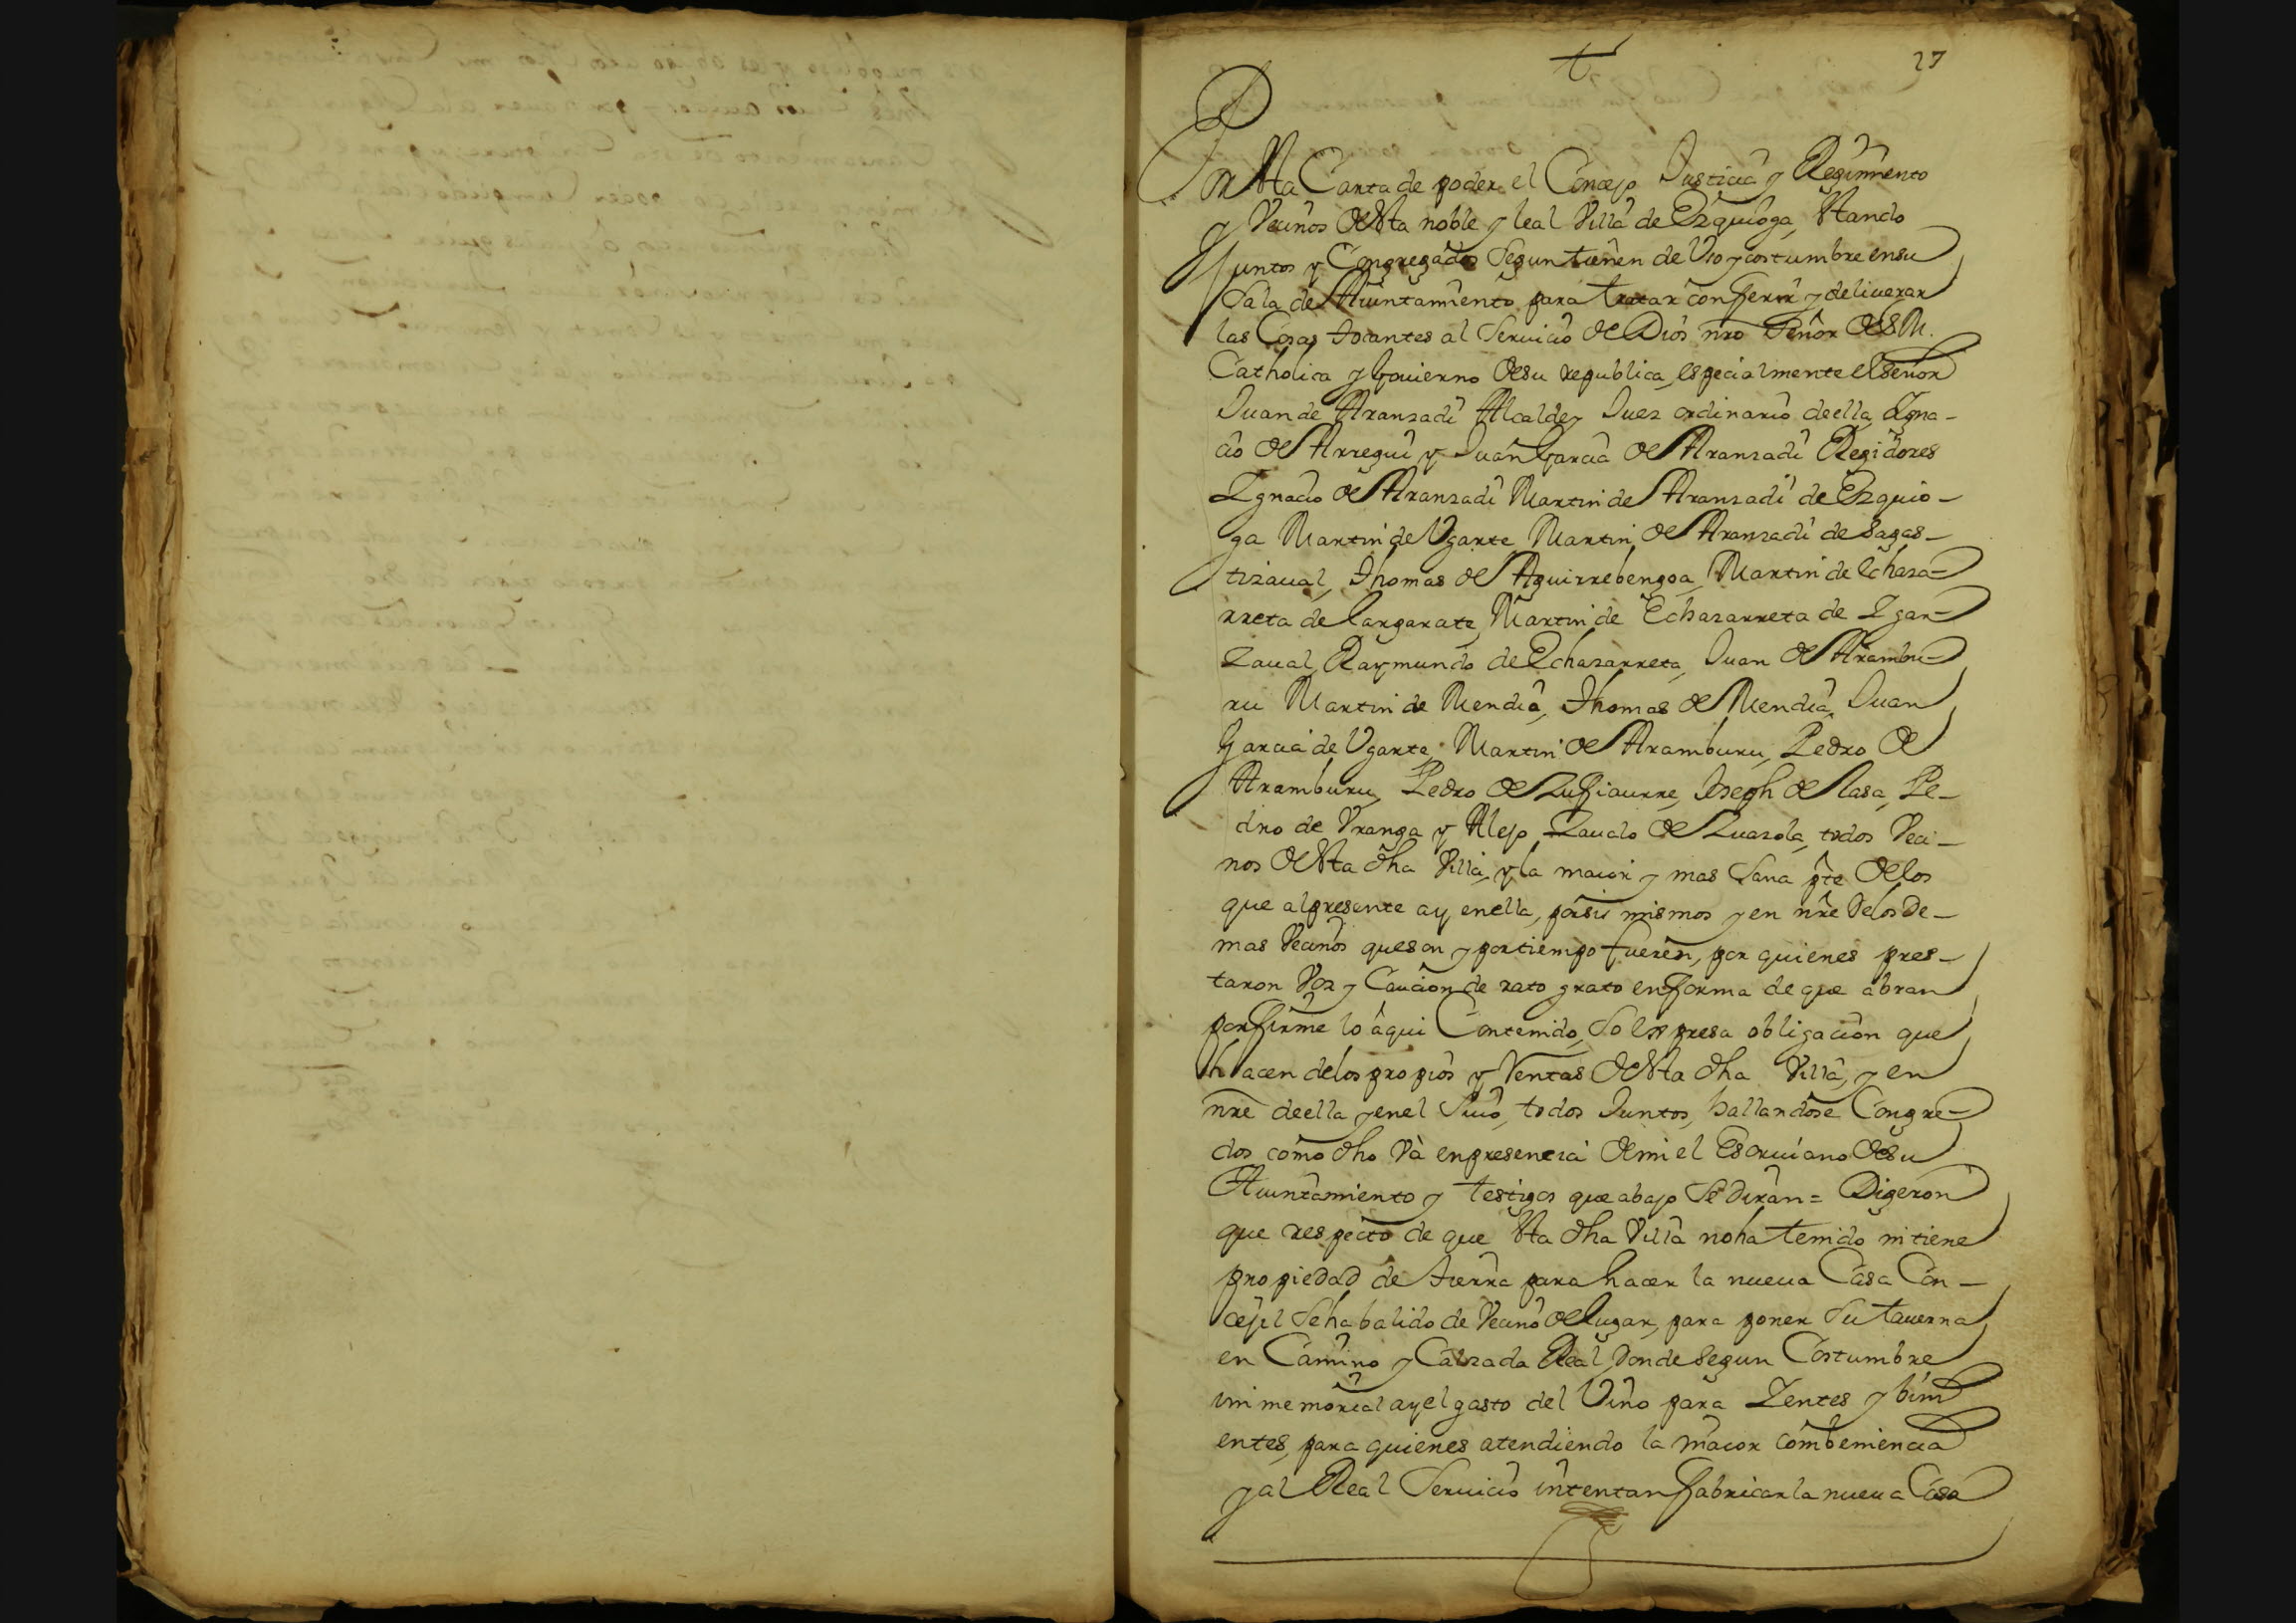 27
Por esta Carta de poder el Concejo Justicia y Regimiento
y Vecinos desta noble y leal Villa de Ezquioga, estando
Juntos y Congregados Segun tienen de Uso y costumbre en su
Sala de Aiuntamiento para tratar conferir y deliverar
las Cosas tocantes al Servicio de Dios nro Señor de S M.
Catholica y Govierno de su republica, especialmente el señor
Juan de Aranzadi Alcalde y Juez ordinario de ella, Igna-
cio de Arregui y Juan Garcia de Aranzadi Regidores
Ignacio de Aranzadi Martin de Aranzadi de Ezquio-
ga Martin de Ugarte Martin de Aranzadi de Sagas-
tizaval, Thomas de Aguirrebengoa, Martin de Echaza=
rreta de Largarate, Martin de Echazarreta de Igar=
zaval, Raymundo de Echazarreta, Juan de Arambu=
ru Martin de Mendia, Thomas de Mendia, Juan
Garcia de Ugarte, Martin de Aramburu, Pedro de
Aramburu, Pedro de Zufiaurre, Joseph de lasa, Pe-
dro de Uranga y Alejo Zavalo de Zuazola, todos Veci-
nos desta dha Villa, y la maior y mas Sana pte de los
que al presente ay en ella, por si mismos y en nre de los de-
mas Vecinos que son y por tiempo fueren, por quienes pres-
taron Voz y Caucion de rato grato en forma de que abran
por firme lo aqui Contenido, so expresa obligacion que
hacen de los propios y Rentas desta dha Villa, y en
nre de ella y en el Suio, todos Juntos, hallandose Congre=
dos como dho Và en presencia de mi el Escriuano de su
Aiuntamiento y testigos que abajo Se diràn = Digeron
que respecto de que esta dha Villa no ha tenido ni tiene
propiedad de tierra para hacer la nueua Casa Con-
cejil Se ha balido de Vecino de lugar, para poner Su tauerna
en Camino y Calzada Real, donde Segun Costumbre
immemorial ay el gasto del Vino para Zentes y bini
entes, para quienes atendiendo la maior combeniencia
y al Real Seruicio intentan fabricar la nueua Casa